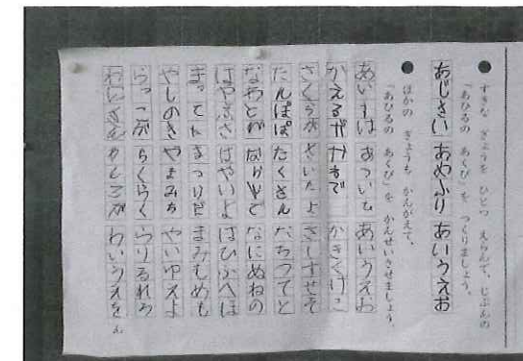 ● すきな ぎょうを ひとつ えらんで、じぶんの
「あひるの あくび」を つくりましょう。
あじさい あめふり あいうえお
● ほかの ぎょうも かんがえて、
「あひるの あくび」を かんせいさせましょう。
あいすは あついと あいうえお
かえるが かきくけこ
さくらが さいたよ さしすせそ
たんぽぽ たくさん たちつてと
なわとび なにぬねの
はやぶさ はやいよ はひふへほ
まってた まつりだ まみむめも
やしのき やまみち やいゆえよ
らっこが らくらく らりるれろ
わいうえをん